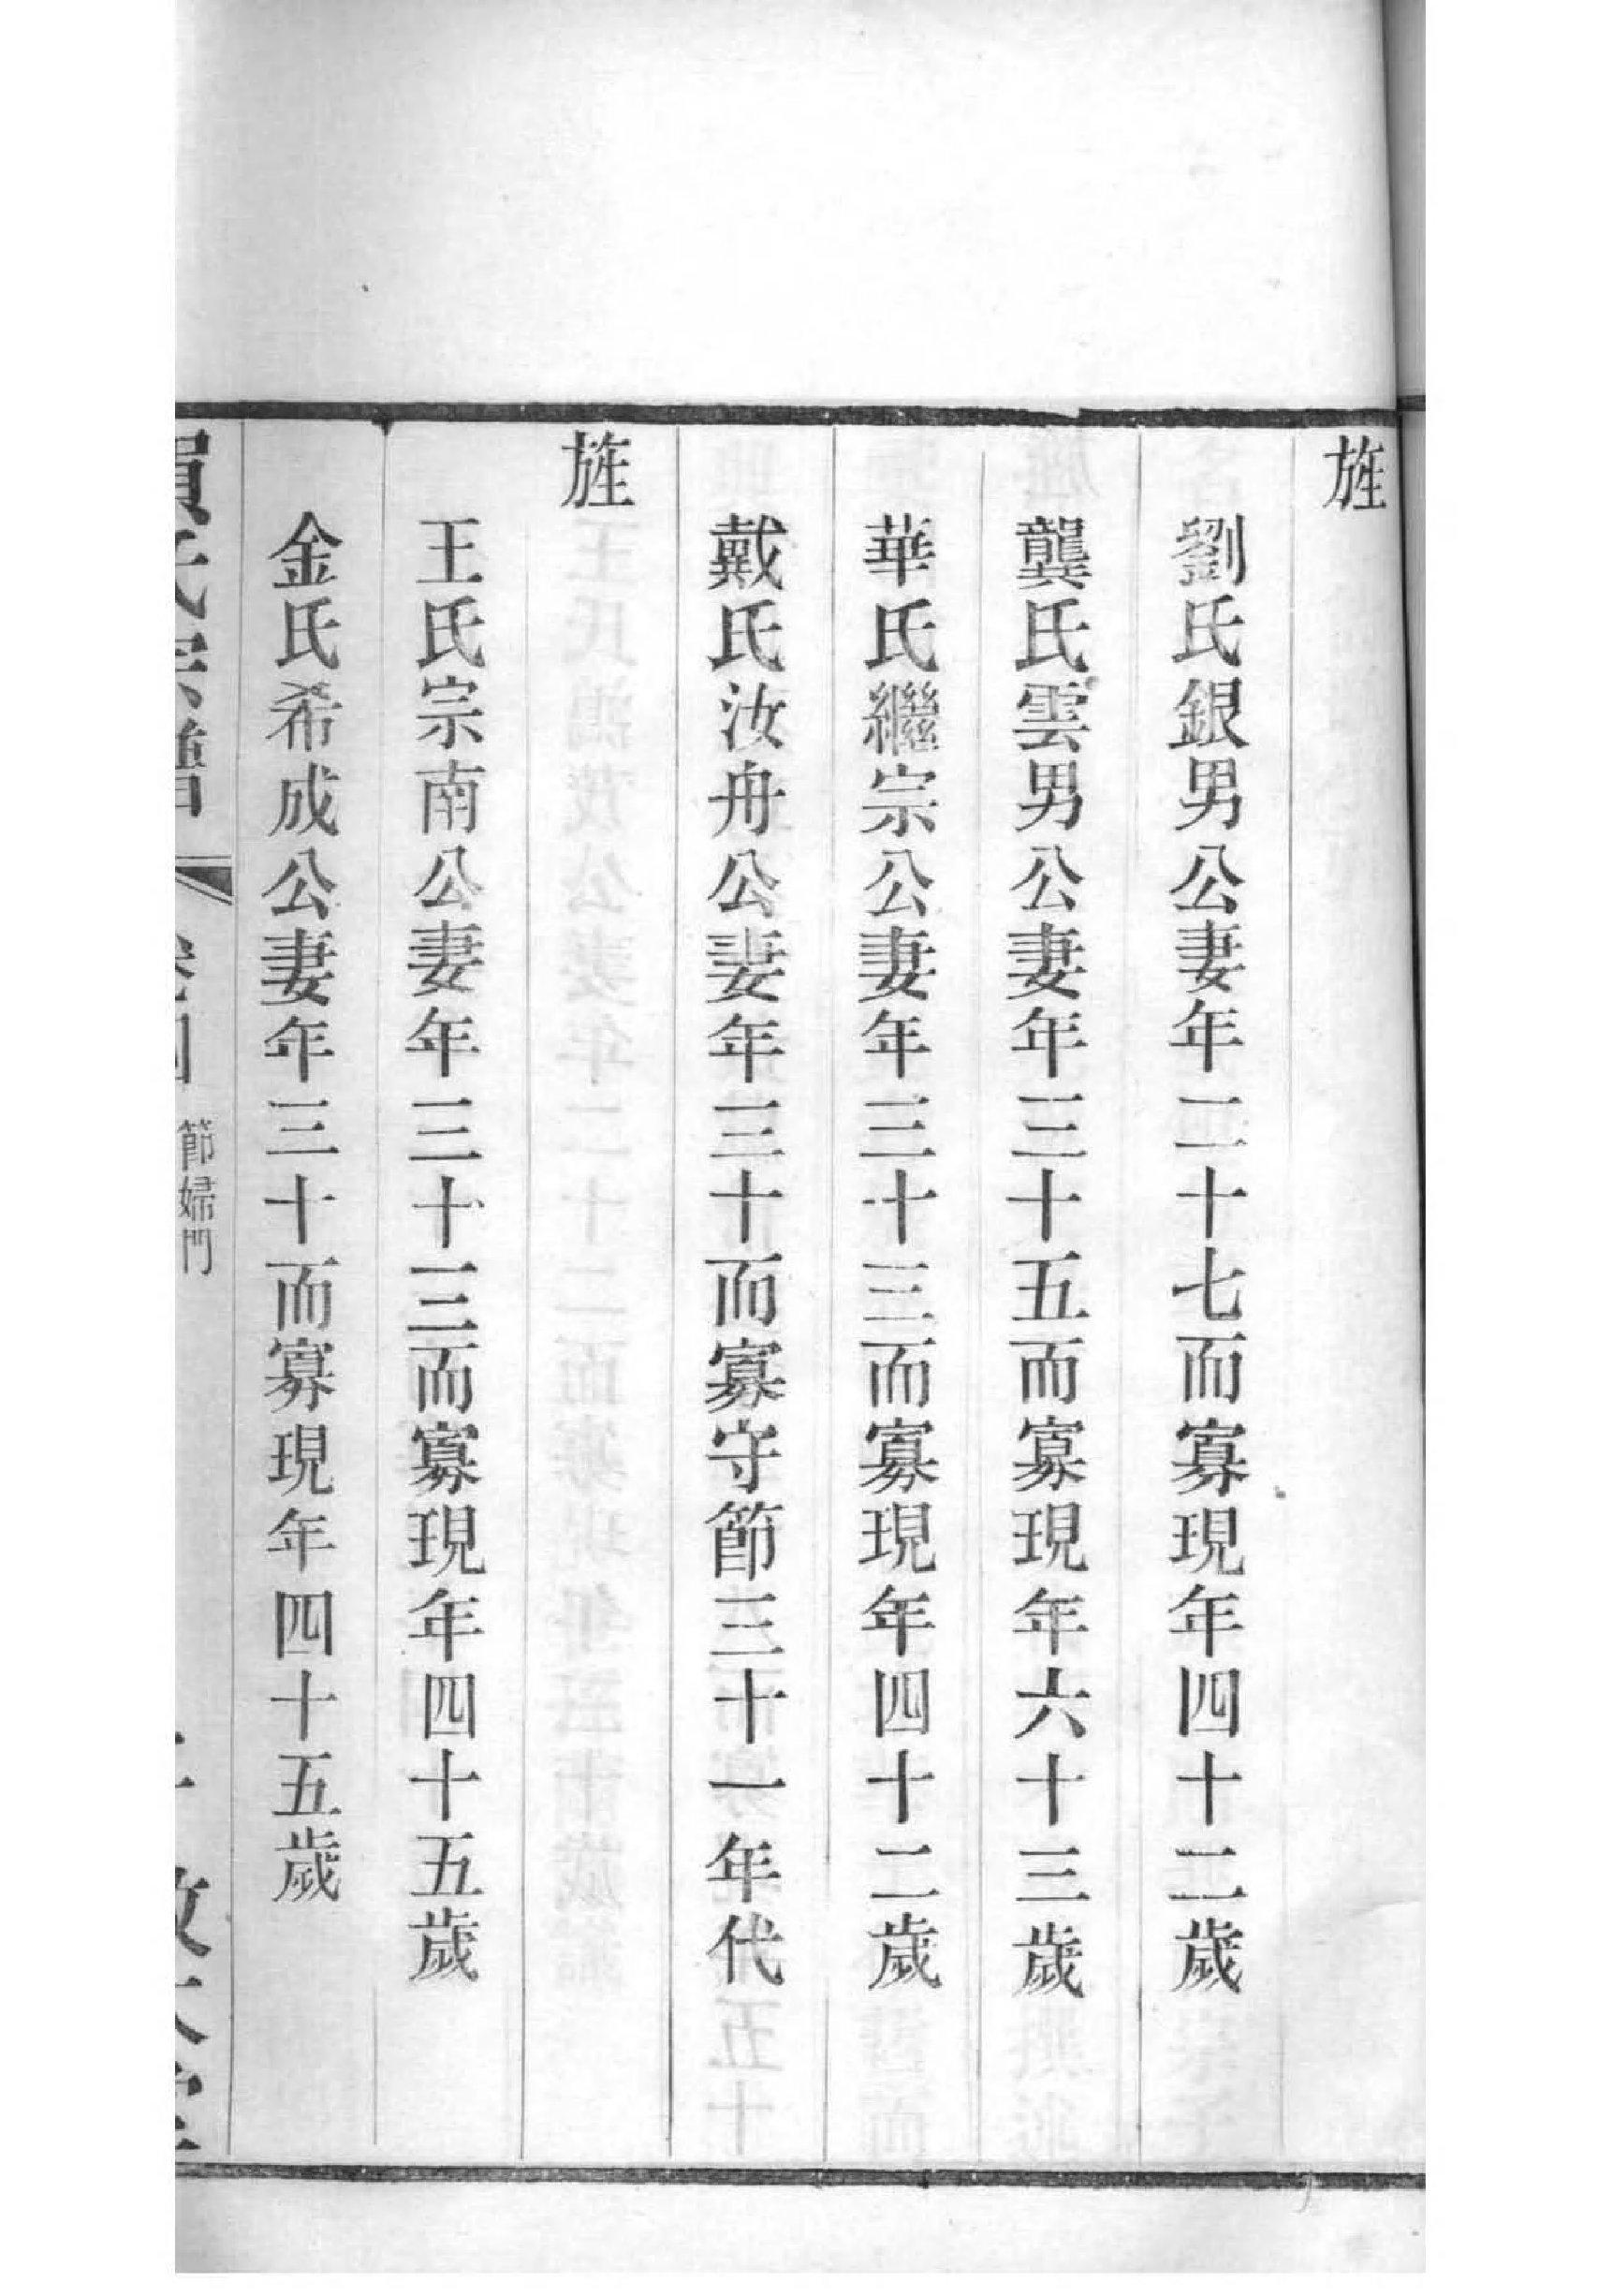 旌
劉氏銀男公妻年二十七而寡現年四十二歲
龔氏雲男公妻年三十五而寡現年六十三歲
華氏繼宗公妻年三十三而寡現年四十二歲
戴氏汝舟公妻年三十而寡守節三十一年代
旌
王氏宗南公妻年三十三而寡現年四十五歲
金氏希成公妻年三十而寡現年四十五歲
氏宗譜 卷四 節婦門